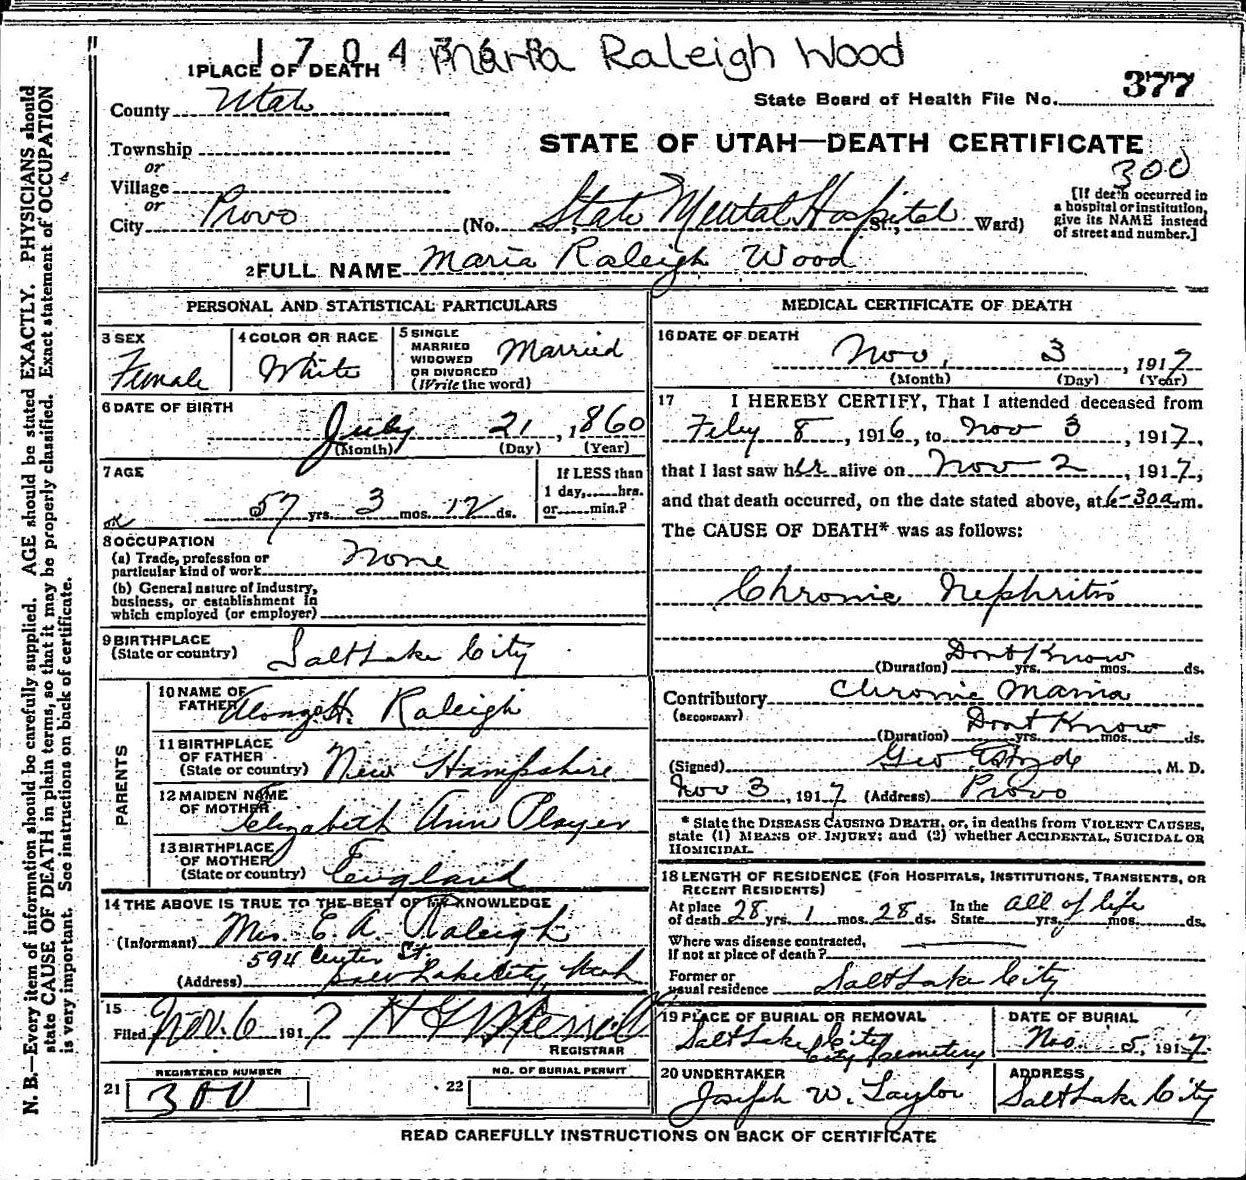 1 7 0 4 Maria Raleigh Wood
1 PLACE OF DEATH
377
County Utah
State Board of Health File No.
Township
STATE OF UTAH—DEATH CERTIFICATE
or
300
Village
or
City Provo (No. State Mental Hospital St., Ward)
[If death occurred in
a hospital or institution,
give its NAME instead
of street and number.]
2 FULL NAME Maria Raleigh Wood
PERSONAL AND STATISTICAL PARTICULARS
3 SEX
Female
4 COLOR OR RACE
White
5 SINGLE
MARRIED
WIDOWED
OR DIVORCED
(Write the word)
Married
6 DATE OF BIRTH
July 21, 1860
(Month) (Day) (Year)
7 AGE
57 yrs. 3 mos. 12 ds.
ok
If LESS than
1 day,......hrs.
or......min.?
8 OCCUPATION
(a) Trade, profession or
particular kind of work None
(b) General nature of industry,
business, or establishment in
which employed (or employer)
9 BIRTHPLACE
(State or country) Salt Lake City
PARENTS
10 NAME OF
FATHER Alonzo H. Raleigh
11 BIRTHPLACE
OF FATHER
(State or country) New Hampshire
12 MAIDEN NAME
OF MOTHER Elizabeth Ann Player
13 BIRTHPLACE
OF MOTHER
(State or country) England
14 THE ABOVE IS TRUE TO THE BEST OF MY KNOWLEDGE
(Informant) Mrs. E. A. Raleigh
594 Center St.
(Address) Salt Lake City, Utah
15
Filed Nov. 6 1917 H G Merrill
REGISTRAR
REGISTERED NUMBER
21 300
NO. OF BURIAL PERMIT
22
MEDICAL CERTIFICATE OF DEATH
16 DATE OF DEATH
Nov. 3, 1917
(Month) (Day) (Year)
17 I HEREBY CERTIFY, That I attended deceased from
Feby 8, 1916, to Nov 3, 1917,
that I last saw her alive on Nov 2, 1917,
and that death occurred, on the date stated above, at 6-30 a.m.
The CAUSE OF DEATH* was as follows:
Chronic Nephritis
(Duration) Dont Know yrs. mos. ds.
Contributory Chronic Mania
(SECONDARY)
(Duration) Dont Know yrs. mos. ds.
(Signed) Geo , M. D.
Nov 3, 1917 (Address) Provo
* State the DISEASE CAUSING DEATH, or, in deaths from VIOLENT CAUSES,
state (1) MEANS OF INJURY; and (2) whether ACCIDENTAL, SUICIDAL OR
HOMICIDAL.
18 LENGTH OF RESIDENCE (FOR HOSPITALS, INSTITUTIONS, TRANSIENTS, OR
RECENT RESIDENTS)
At place
of death 28 yrs. 1 mos. 28 ds. In the
State all of life yrs. mos. ds.
Where was disease contracted,
If not at place of death?
Former or
usual residence Salt Lake City
19 PLACE OF BURIAL OR REMOVAL
Salt Lake City
City Cemetery
DATE OF BURIAL
Nov. 5, 1917
20 UNDERTAKER
Joseph W. Taylor
ADDRESS
Salt Lake City
READ CAREFULLY INSTRUCTIONS ON BACK OF CERTIFICATE
N. B.—Every item of information should be carefully supplied. AGE should be stated EXACTLY. PHYSICIANS should
state CAUSE OF DEATH in plain terms, so that it may be properly classified. Exact statement of OCCUPATION
is very important. See instructions on back of certificate.